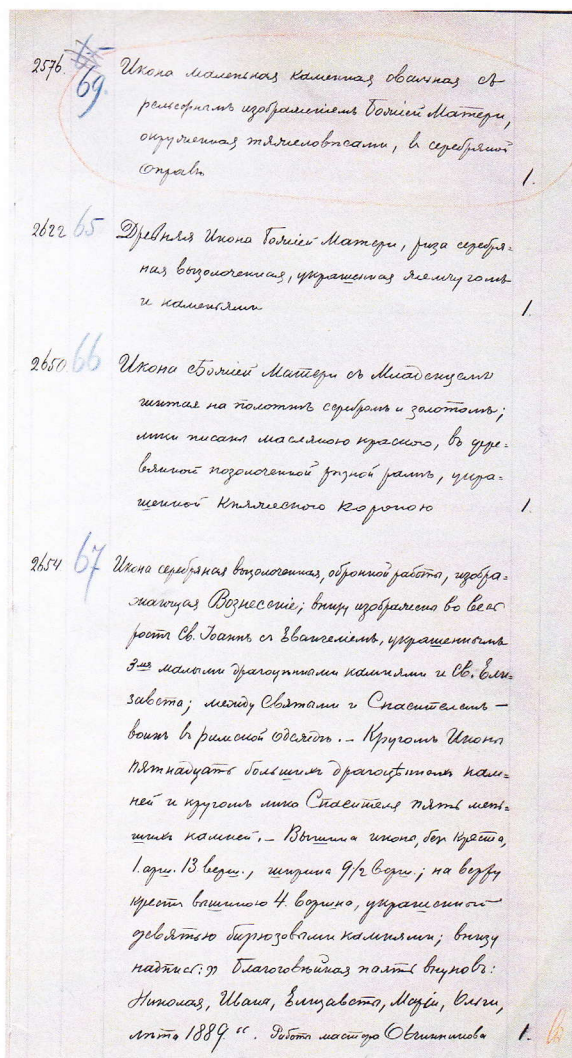 2576. 69. Икона маленькая каменная овальная съ
рельефнымъ изображеніемъ Божіей Матери,
окруженная тяжеловѣсами, въ серебряной
оправѣ 1.
2622 65 Древняя Икона Божіей Матери, риза серебря-
ная вызолоченная, украшенная жемчугомъ
и каменьями 1.
2650 66 Икона Божіей Матери съ Младенцемъ
шитая на полотнѣ серебромъ и золотомъ;
лики писаны масляною краскою, въ дере-
вянной позолоченной рѣзной рамѣ, укра-
шенной Княжескою короною 1.
2654 67 Икона серебряная вызолоченная, обронной работы, изобра-
жающая Вознесеніе; внизу изображены во весь
ростъ Св. Іоаннъ съ Евангеліемъ, украшеннымъ
3мя малыми драгоцѣнными камнями и Св. Ели-
завета; между Святыми и Спасителемъ —
воинъ въ римской одеждѣ. — Кругомъ Иконы
пятнадцать большихъ драгоцѣнныхъ кам-
ней и кругомъ лика Спасителя пять мень-
шихъ камней. — Вышина иконы, безъ Креста,
1. арш. 13 верш., ширина 9 1/2 верш.; на верху
крестъ вышиною 4. вершка, украшенный
девятью бирюзовыми камнями; внизу
надпись: „Благоговѣйная память внуковъ:
Николая, Ивана, Елизаветы, Маріи, Ольги,
лѣта 1889.“ Работы мастера Овчинникова 1.